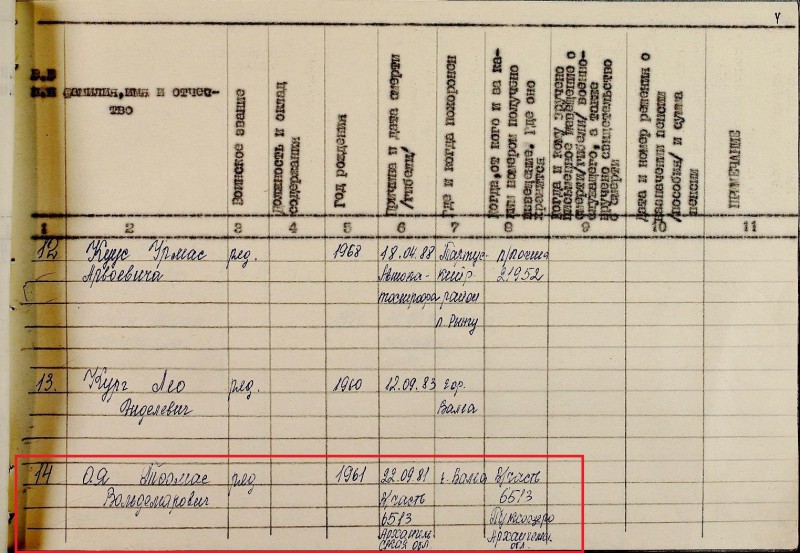 У
В.В
П.П фамилия,имя и отчес-
тво
Воинское звание
Должность и оклад
содержания
Год рождения
Причина и дата смерти
/гибели/
Где и когда похоронен
Когда,от кого и за ка-
ким номером получено
извещение. Где оно
хранится
Когда и кому вручено
письменное извещение о
смерти/гибели/ военно-
служащего, а также
вручено свидетельство
о смерти
Дата и номер решения о
назначении пенсии
/пособия/ и сумма
пенсии
ПРИМЕЧАНИЕ
1 2 3 4 5 6 7 8 9 10 11
12 Куус Урмас ряд. 1968 18.04.88 Тартус- п/почта
Арвоевича Автока- кий 21952
тострофа район
п. Рынгу
13. Кург Лео ряд. 1960 12.09.83 гор.
Энделевич Валга
14 Оя Тоомас ряд 1961 22.09.81 г. Валга в/часть
Вольдемарович в/часть 6513
6513 Пуксоозеро
Архангель Архангельск.
ская обл. обл.